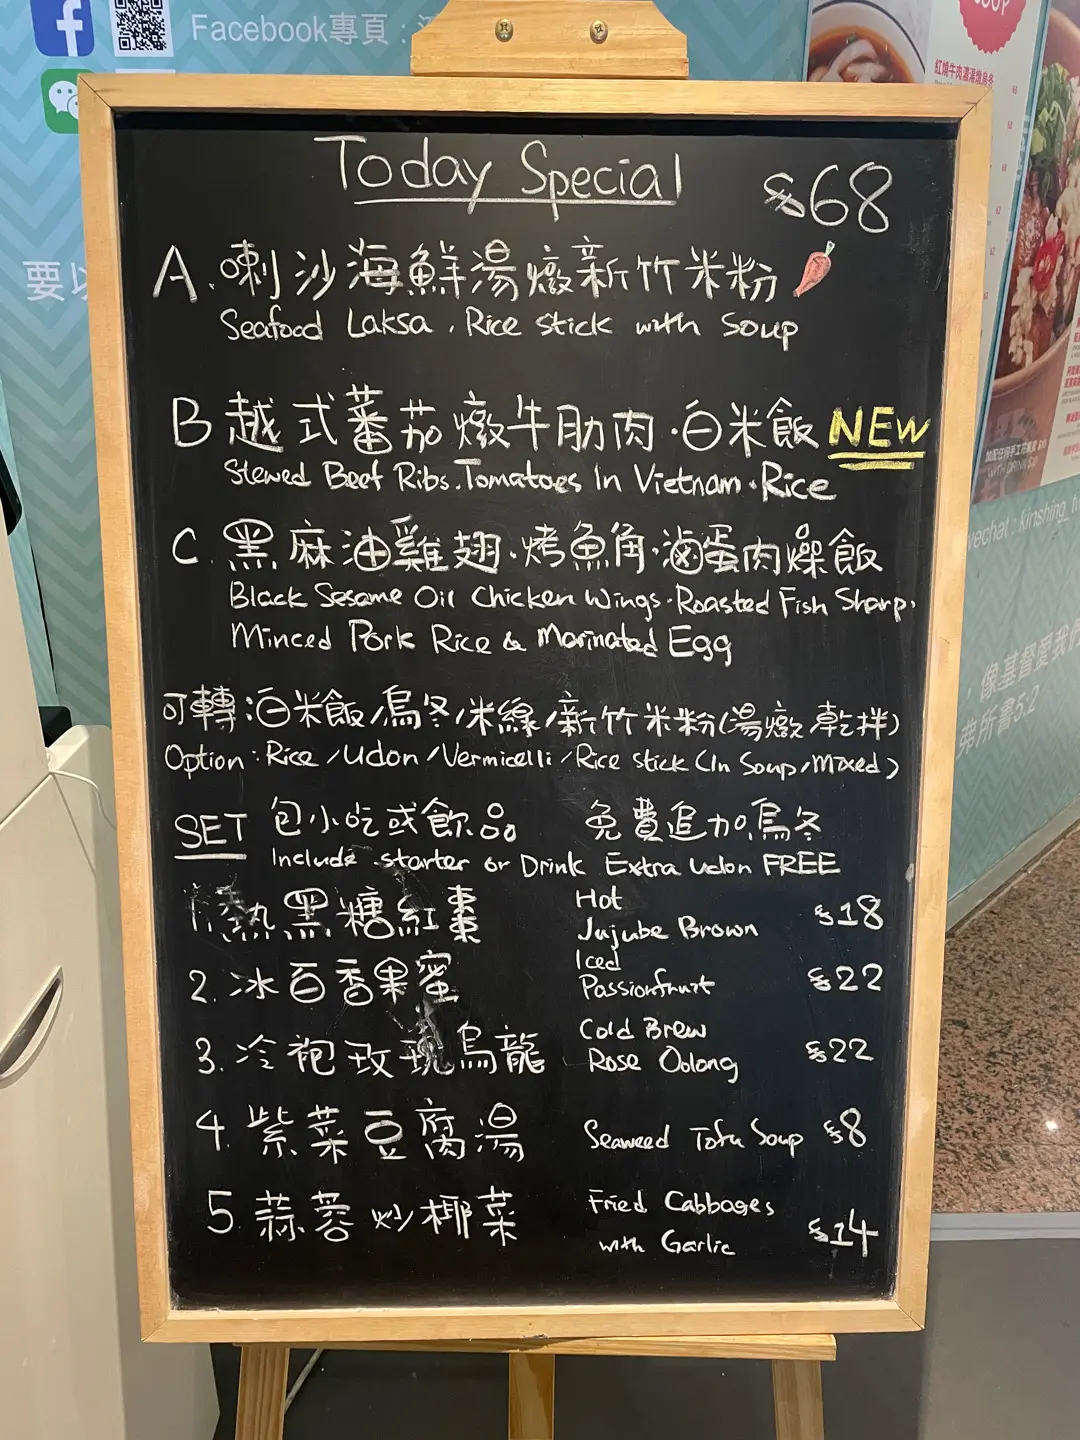 Facebook專頁:
要以
紅燒牛肉湯燉烏冬
Today Special $68
A. 喇沙海鮮湯燉新竹米粉
Seafood Laksa . Rice stick with Soup
B 越式蕃茄燉牛肋肉·白米飯 NEW
Stewed Beef Ribs.Tomatoes In Vietnam.Rice
C. 黑麻油雞翅·烤魚角·滷蛋肉燥飯
Black Sesame Oil Chicken Wings·Roasted Fish Sharp,
Minced Pork Rice & Marinated Egg
可轉:白米飯/烏冬/米線/新竹米粉(湯燉/乾拌)
Option : Rice /Udon /Vermicelli /Rice stick (In Soup/Mixed)
SET 包小吃或飲品 免費追加烏冬
Include starter or Drink Extra udon FREE
1. 熱黑糖紅棗 Hot Jujube Brown $18
2. 冰百香果蜜 Iced Passionfruit $22
3. 冷袍玫瑰烏龍 Cold Brew Rose Oolong $22
4. 紫菜豆腐湯 Seaweed Tofu Soup $8
5. 蒜蓉炒椰菜 Fried Cabbages with Garlic $14
wechat : kinshing_
像基督愛我們
弗所書5:2